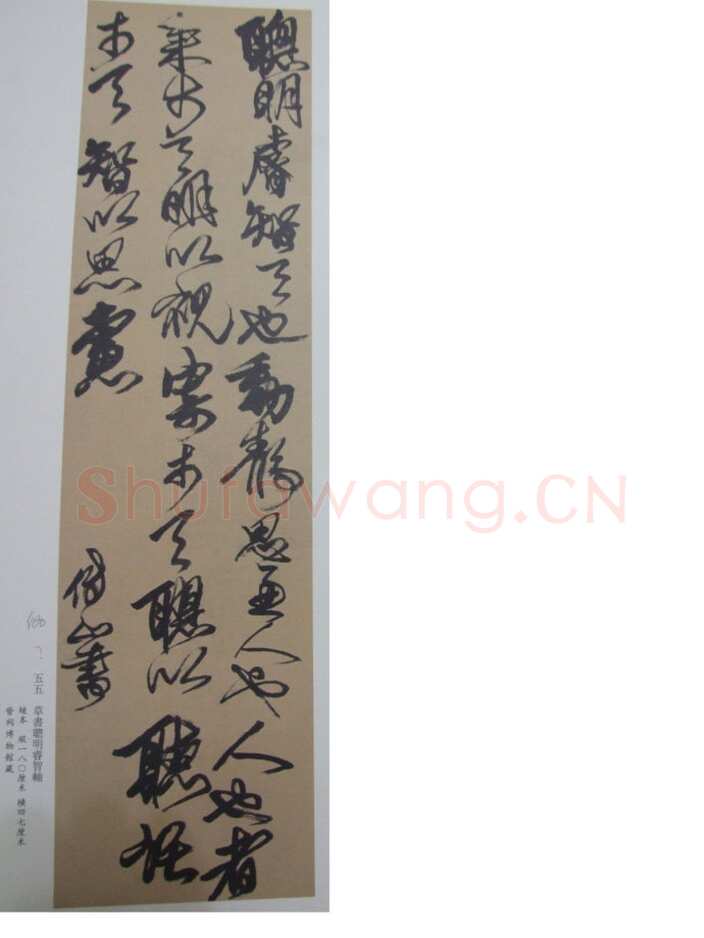 聰明睿智天也動靜思慮人也人也者
乘於天明以視寄於天聰以聽託
於天智以思慮
傅山書
五五 草書聰明睿智軸
綾本 縱一八〇厘米 橫四七厘米
晉祠博物館藏
Shufawang.CN